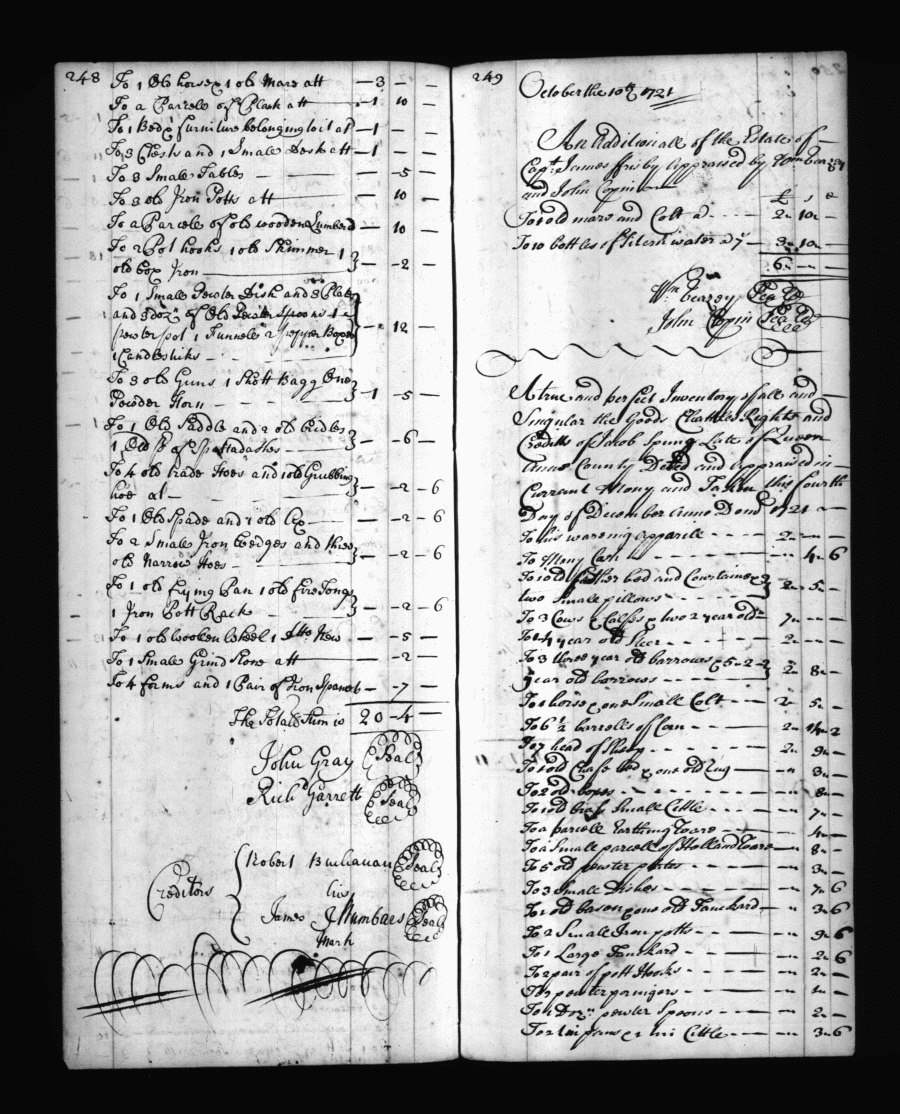 248
To 1 Old horse & 1 old Mare att — 3 — —
To a Parcell of Plank att — 1 10 —
To 1 Bed & furniture belonging to it at — 1 — —
To 3 Chests and 1 Small Desk att — 1 — —
To 3 Smale Tables — — 5 —
To 3 old Iron Potts att — 10 —
To a Parcele of old wooden Lumber — 10 —
To 2 Pot hooks 1 old Skimmer 1
old box Iron — — 2 —
To 1 Small Pewter Dish and 3 Plates
and doz of Old Pewter Spoons 1
pewter pot 1 Funnele 2 pepper Boxes — 12 —
1 Candlestiks
To 3 old Guns 1 Shott Bagg One
Powder Horn — 1 — 5 —
To 1 Old Saddle and 2 old bridles
1 Old pr of Spattadashes — — 6 —
To 4 old trade Hoes and 1 old Grubbing
hoe at — — 2 — 6
To 1 Old Spade and 1 old Ax — — 2 — 6
To 2 Small Iron wedges and three
old Narrow Hoes — — 2 — 6
To 1 old frying Pan 1 old fire Tongs
1 Iron Pott Rack — — 2 — 6
To 1 old woolen wheel 1 Ditto New — — 5 —
To 1 Small Grind Stone att — — 2 —
To 4 forms and 1 Pair of Iron — — 7 —
The Totall Sum is 20 — 4 —
John Gray Seal
Richd Garrett Seal
Creditors
Robert Buchanan Seal
his
James Numbars Seal
Mark
249
October the 10th 1721
An Additionall of the Estate of
Capt James ffrisby Appraised by
and John Copin
£ s d
To 1 old mare and Colt a 2 10
To 10 bottles of water a 3 10
6
Wm Seal
John Copin Seal
A true and perfect Inventory of all and
Singular the Goods Chattles Rights and
Credits of Jacob Spung Late of Queen
Anns County Dec'd and Appraised in
Currant Mony and Taken this fourth
Day of December Anno Dom 1721
To his wareing apparile 2
To Mony Cash 4 6
To 1 old feather bed and Courtains &
two Small pillows 2 5
To 3 Cows & Calfs & two 2 year old 7
To 1 4 year old Steer 2
To 3 three year old barrows & 5 2
year old barrows 2 8
To 1 horse & one Small Colt 2 5
To 6 1/2 barrells of Corn 2 14 2
To 7 head of Sheep 2 9
To 1 old Chafe bed & one old Rug 3
To 2 old boxes 8
To 1 old brass Small Cittle 7
To a parcell Earthing Ware 4
To a Small parcell of Holland Ware 8
To 5 old pewter 3
To 3 Small Dishes 7 6
To 1 old bason & one old Tanckard 3 6
To 2 Small Iron potts 9 6
To 1 Large Tanckard 2 6
To 2 pair of pott Hooks 2
To pewter poringers 1
To 1 Dozn pewter Spoons 2
To 2 tin pans & tin Cittle 3 6